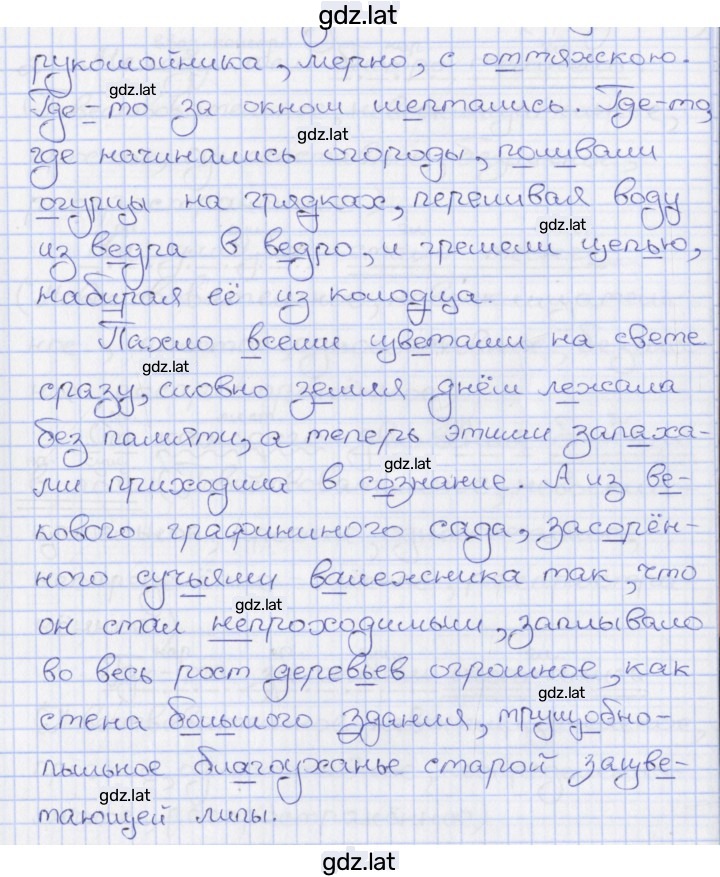 gdz.lat
рукомойника, мерно, с оттяжкою.
gdz.lat
Где-то за окном шептались. Где-то,
gdz.lat
где начинались огороды, поливали
огурцы на грядках, переливая воду
gdz.lat
из ведра в ведро, и гремели цепью,
набирая её из колодца.
Пахло всеми цветами на свете
gdz.lat
сразу, словно земля днём лежала
без памяти, а теперь этими запаха-
gdz.lat
ми приходила в сознание. А из ве-
кового графининого сада, засорён-
ного сучьями валежника так, что
gdz.lat
он стал непроходимым, заплывало
во весь рост деревьев огромное, как
gdz.lat
стена большого здания, трущобно-
пыльное благоуханье старой зацве-
gdz.lat
тающей липы.
gdz.lat